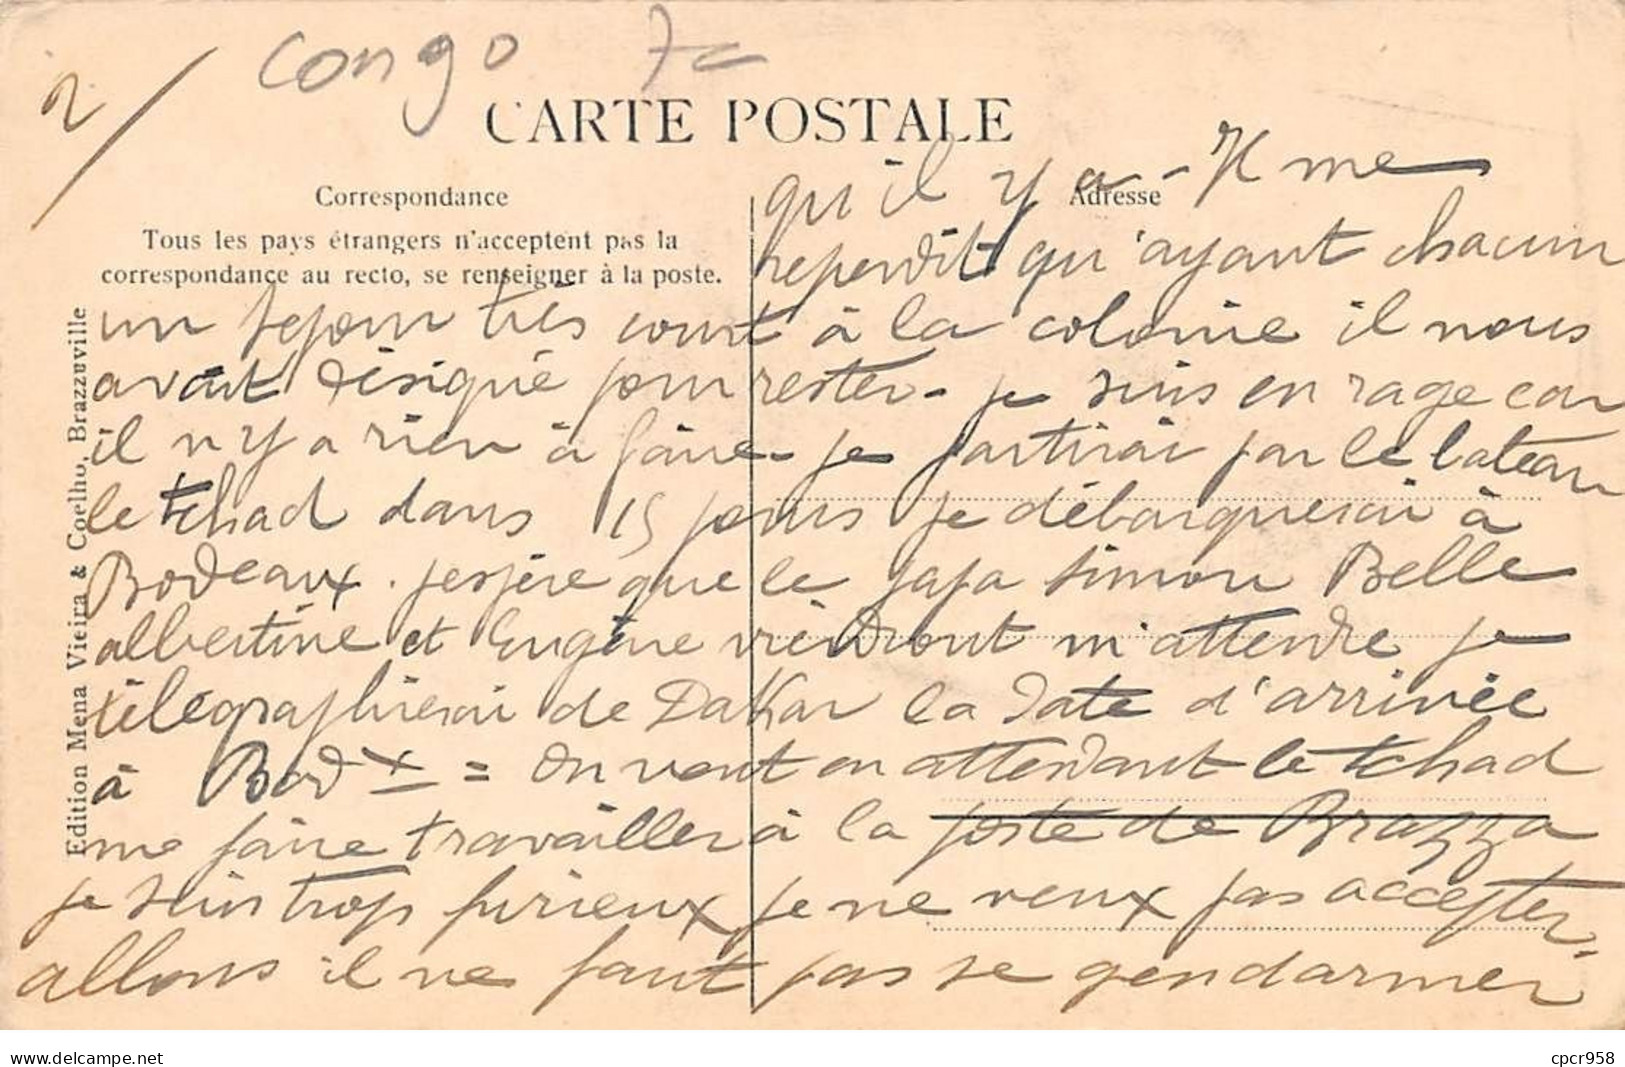 2/
Congo 7c
CARTE POSTALE
Correspondance
Adresse
Tous les pays étrangers n'acceptent pas la
correspondance au recto, se renseigner à la poste.
Edition Mena Vieira & Coelho, Brazzuville
qu'il y a - Il me
repondit qu'ayant chacun
un sejour très court à la colonie il nous
avait désigné pour rester - je suis en rage car
il n y a rien à faire - je partirai par le bateau
le tchad dans 15 jours je débarquerai à
Bordeaux. j'espère que le papa Simon Belle
albertine et Eugène viendront m'attendre je
télégraphierai de Dakar la date d'arrivée
à Bordx = on veut en attendant le tchad
me faire travailler à la poste de Brazza
je suis trop furieux je ne veux pas accepter
allons il ne faut pas se gendarmer
www.delcampe.net
cpcr958